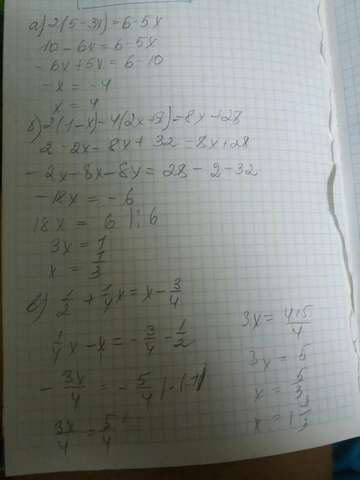 а) 2(5-3x)=6-5x
10-6x=6-5x
-6x+5x=6-10
-x=-4
x=4
б) 2(1-x)-4(2x+8)=8x+28
2-2x-8x+32=8x+28
-2x-8x-8x=28-2-32
-18x=-6
18x=6 |:6
3x=1
x=1/3
в) 1/2+1/4x=x-3/4
1/4x-x=-3/4-1/2
-3x/4=-5/4 |·(-1)
3x/4=5/4
3x=4·5/4
3x=5
x=5/3
x=1 2/3